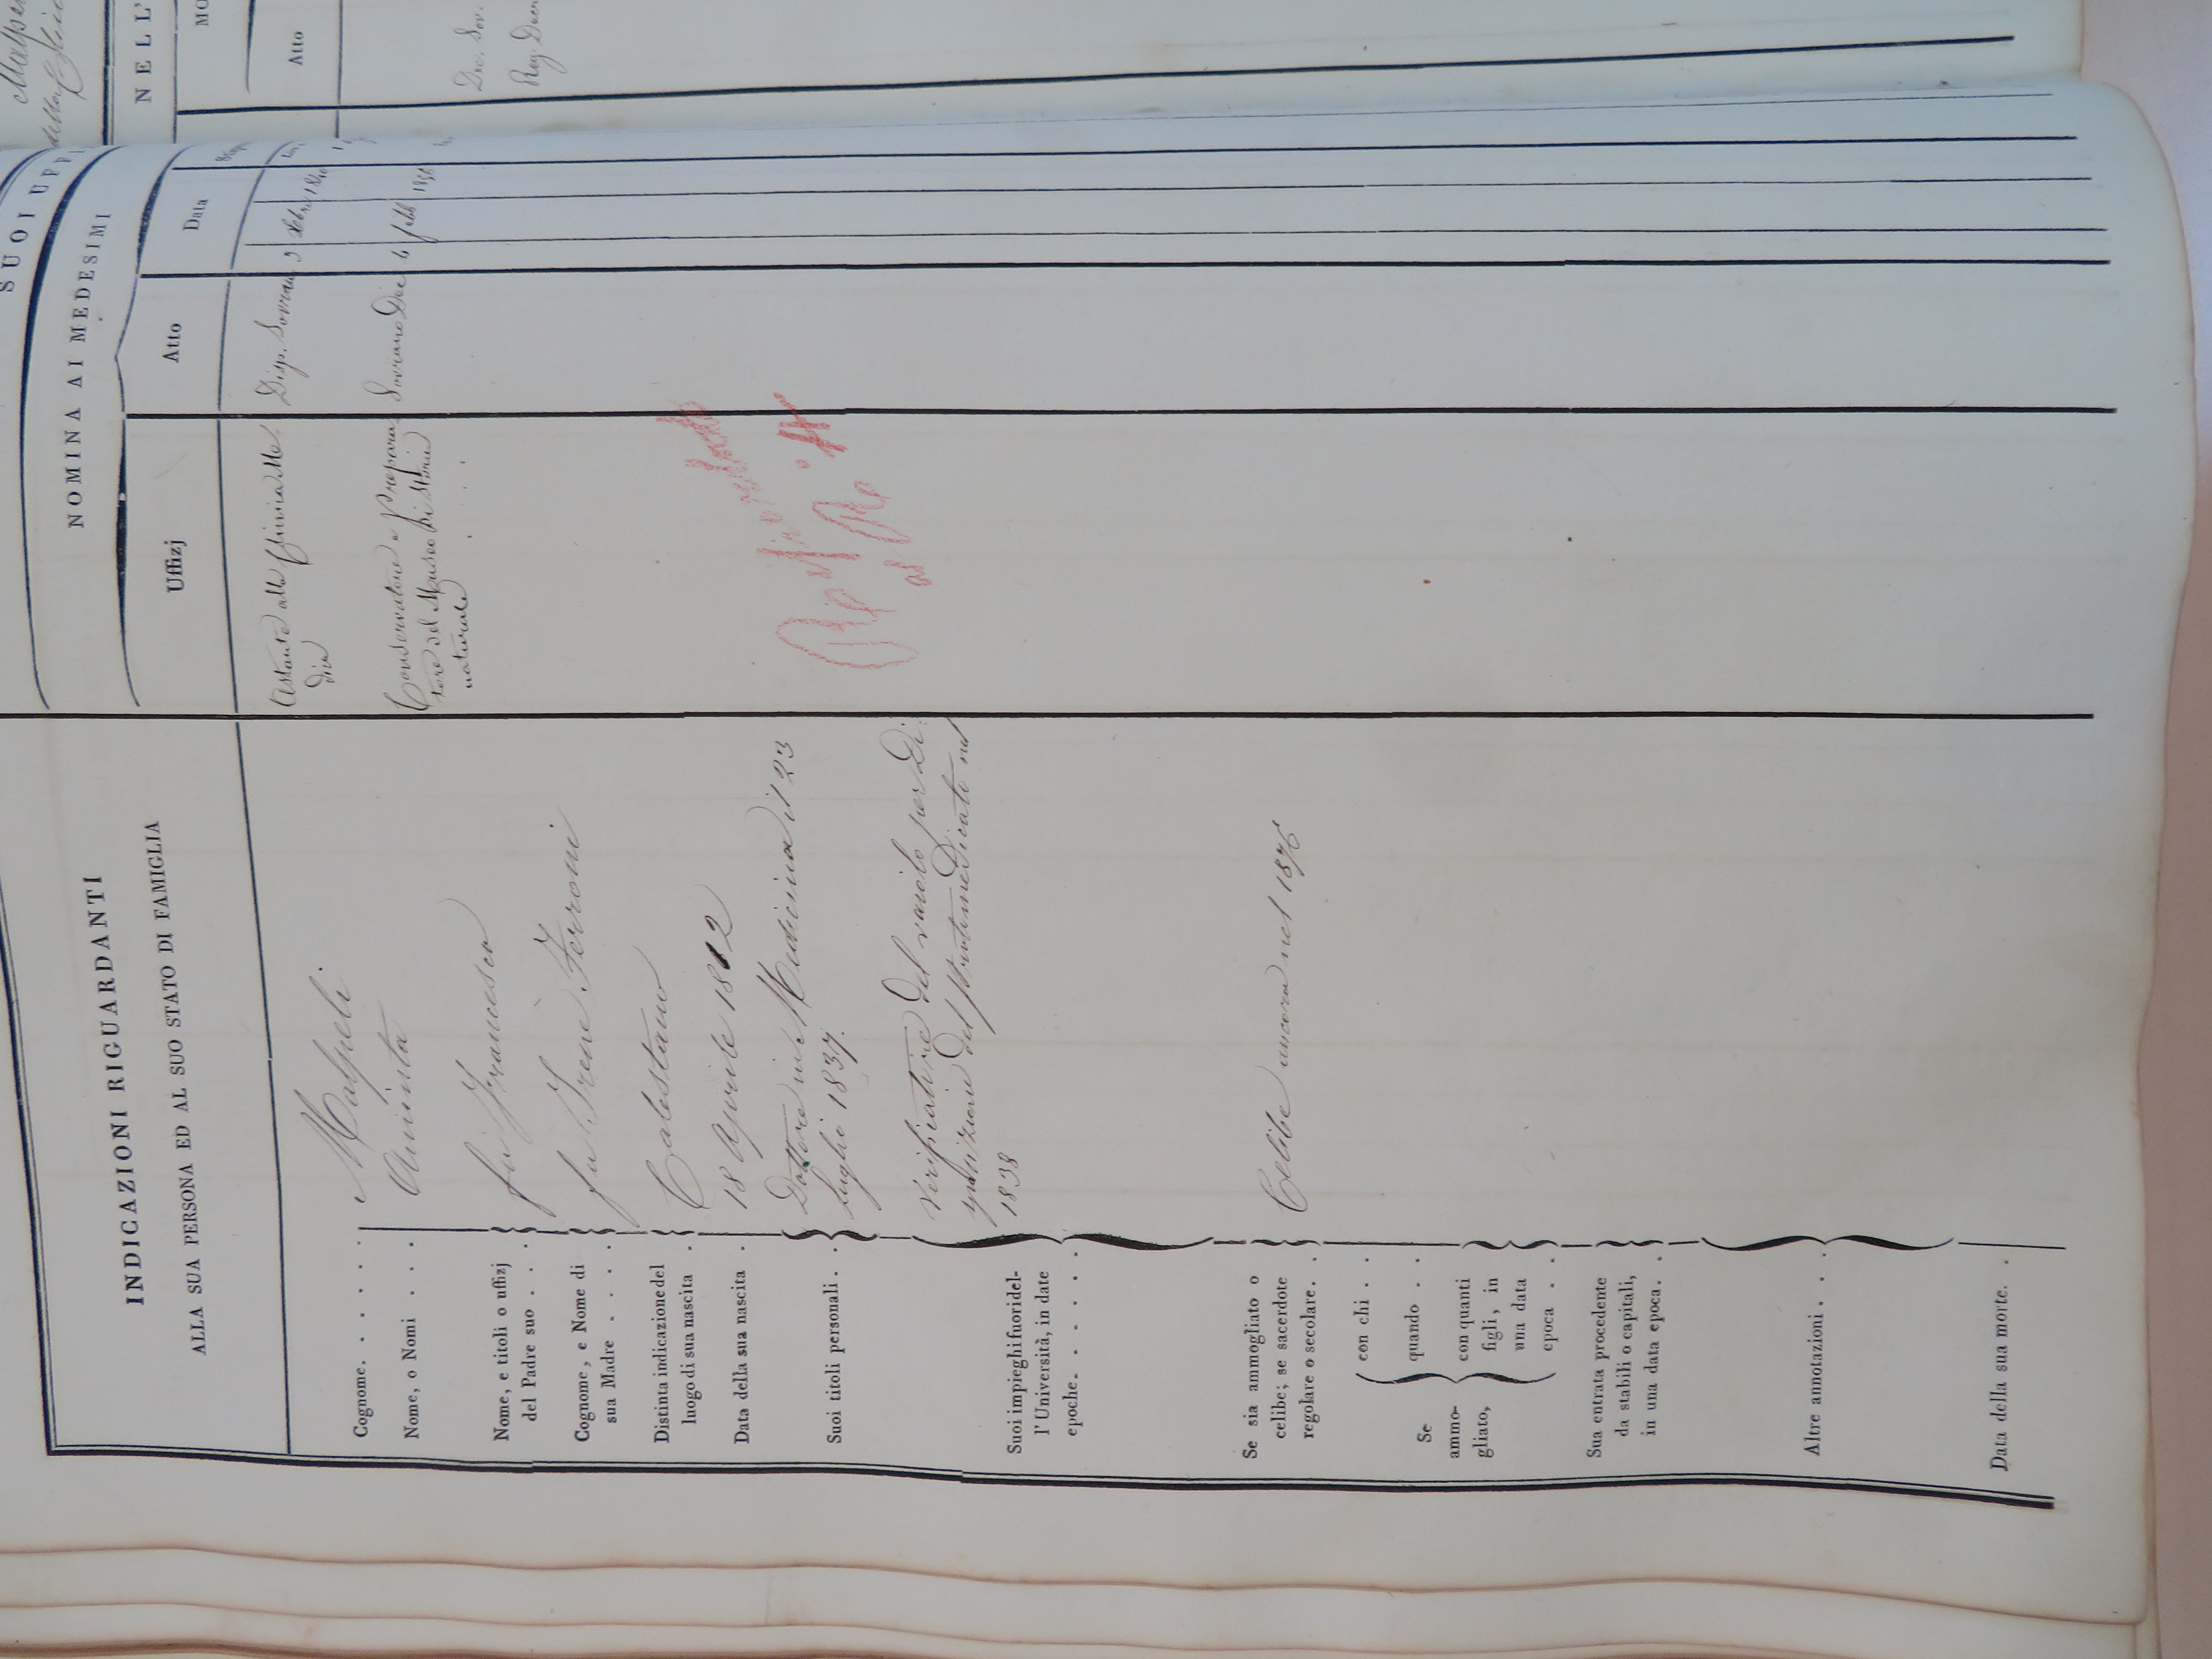 INDICAZIONI RIGUARDANTI
ALLA SUA PERSONA ED AL SUO STATO DI FAMIGLIA
Cognome. . . . . . Malpeli
Nome, o Nomi . . . . Aminta
Nome, e titoli o uffizj
del Padre suo . . . fu Francesco
Cognome, e Nome di
sua Madre . . . . fu Irene Ferroni
Distinta indicazione del
luogo di sua nascita . Calestano
Data della sua nascita . 18 Aprile 1812
Suoi titoli personali . Dottore in Medicina il 23
Luglio 1837.
Suoi impieghi fuori del-
l'Università, in date
epoche. . . . . . .
Verificatore del vaiolo per di
del Protomedicato nel
1838
Se sia ammogliato o
celibe; se sacerdote
regolare o secolare. . Celibe ancora nel 1876
Se
ammo-
gliato,
con chi . .
quando . .
con quanti
figli, in
una data
epoca . .
Sua entrata procedente
da stabili o capitali,
in una data epoca. .
Altre annotazioni . . .
Data della sua morte. .
SUOI UFFI
NOMINA AI MEDESIMI
Uffizj
Atto
Data
Astante alla
Disp. Sovrana 9
Conservatore e Prepara
tore del Museo di Storia
naturale
Sovrano Dec 6 febb
NELL'
MO
Atto
Dec. Sov.